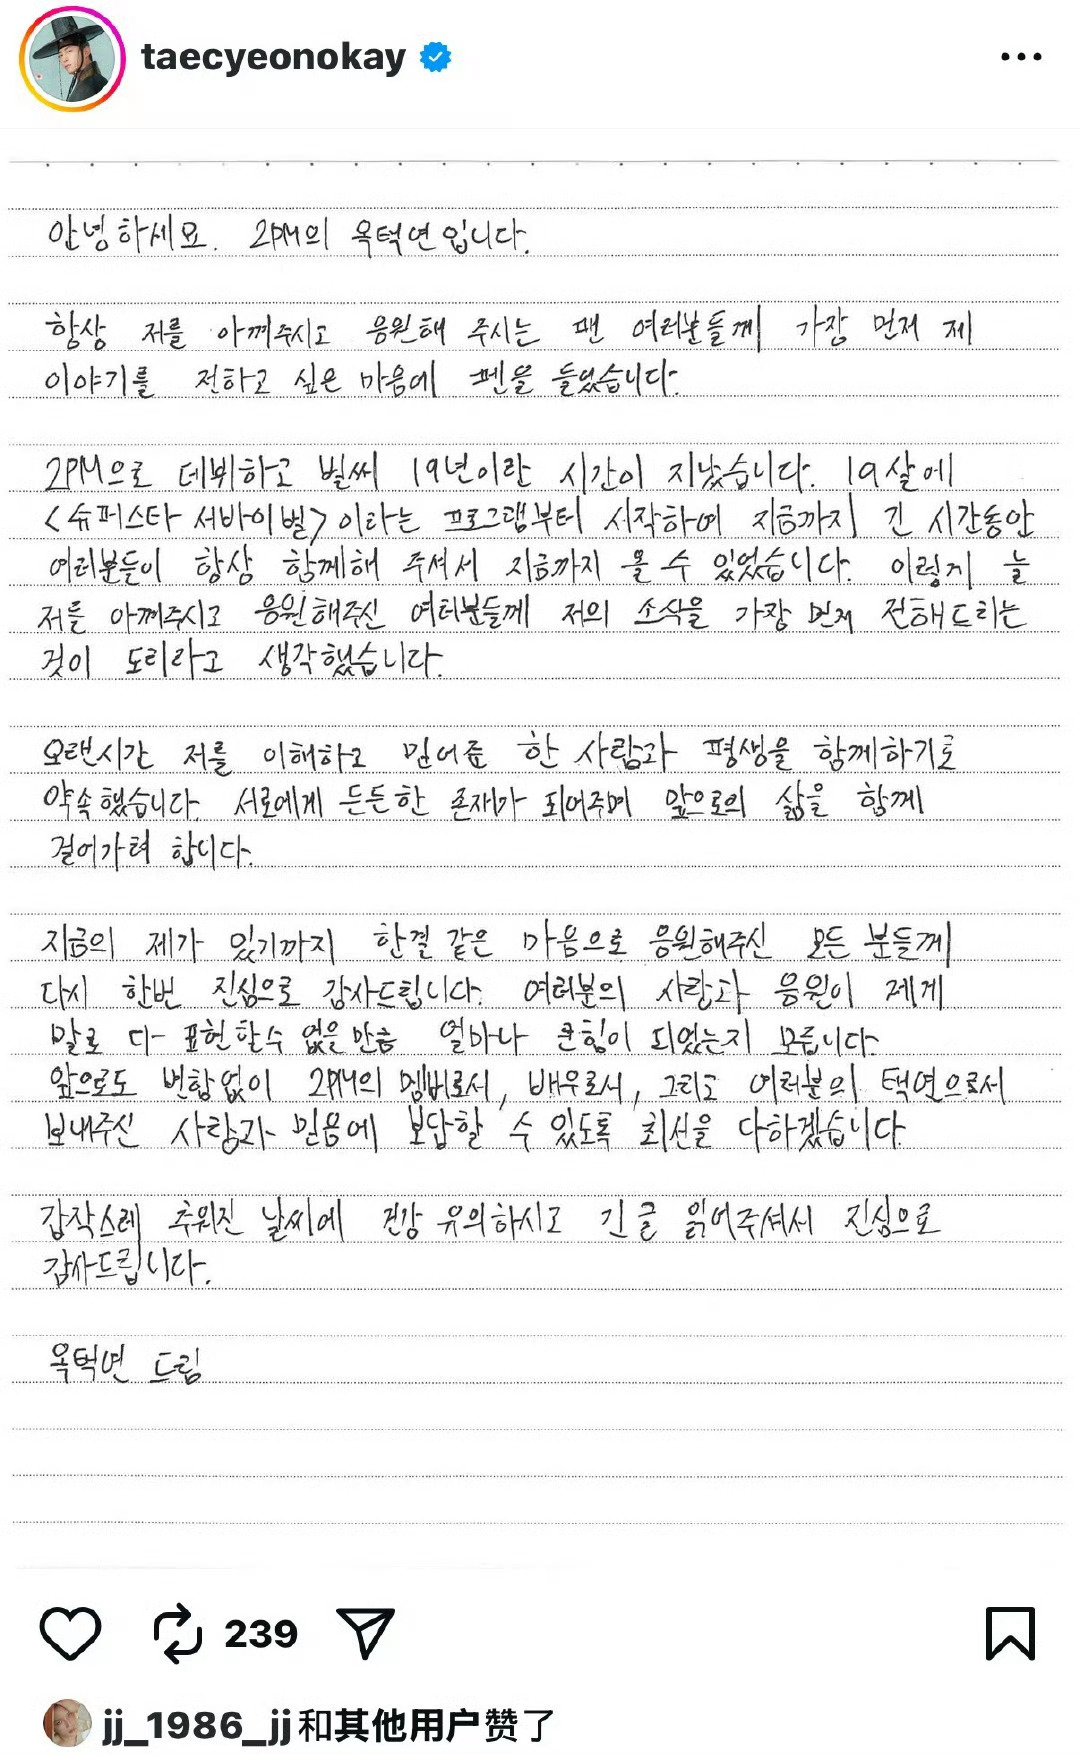 taecyeonokay
안녕하세요. 2PM의 옥택연입니다.
항상 저를 아껴주시고 응원해 주시는 팬 여러분들께 가장 먼저 제
이야기를 전하고 싶은 마음에 펜을 들었습니다.
2PM으로 데뷔하고 벌써 19년이란 시간이 지났습니다. 19살에
<슈퍼스타 서바이벌> 이라는 프로그램부터 시작하여 지금까지 긴 시간동안
여러분들이 항상 함께해 주셔서 지금까지 올 수 있었습니다. 이렇게 늘
저를 아껴주시고 응원해주신 여러분들께 저의 소식을 가장 먼저 전해드리는
것이 도리라고 생각했습니다.
오랜시간 저를 이해하고 믿어준 한 사람과 평생을 함께하기로
약속했습니다. 서로에게 든든한 존재가 되어주며 앞으로의 삶을 함께
걸어가려 합니다.
지금의 제가 있기까지 한결 같은 마음으로 응원해주신 모든 분들께
다시 한번 진심으로 감사드립니다. 여러분의 사랑과 응원이 제게
말로 다 표현할수 없을만큼 얼마나 큰힘이 되었는지 모릅니다.
앞으로도 변함없이 2PM의 멤버로서, 배우로서, 그리고 여러분의 택연으로서
보내주신 사랑과 믿음에 보답할 수 있도록 최선을 다하겠습니다.
갑작스레 추워진 날씨에 건강 유의하시고 긴 글 읽어주셔서 진심으로
감사드립니다.
옥택연 드림
239
jj_1986_jj和其他用户赞了